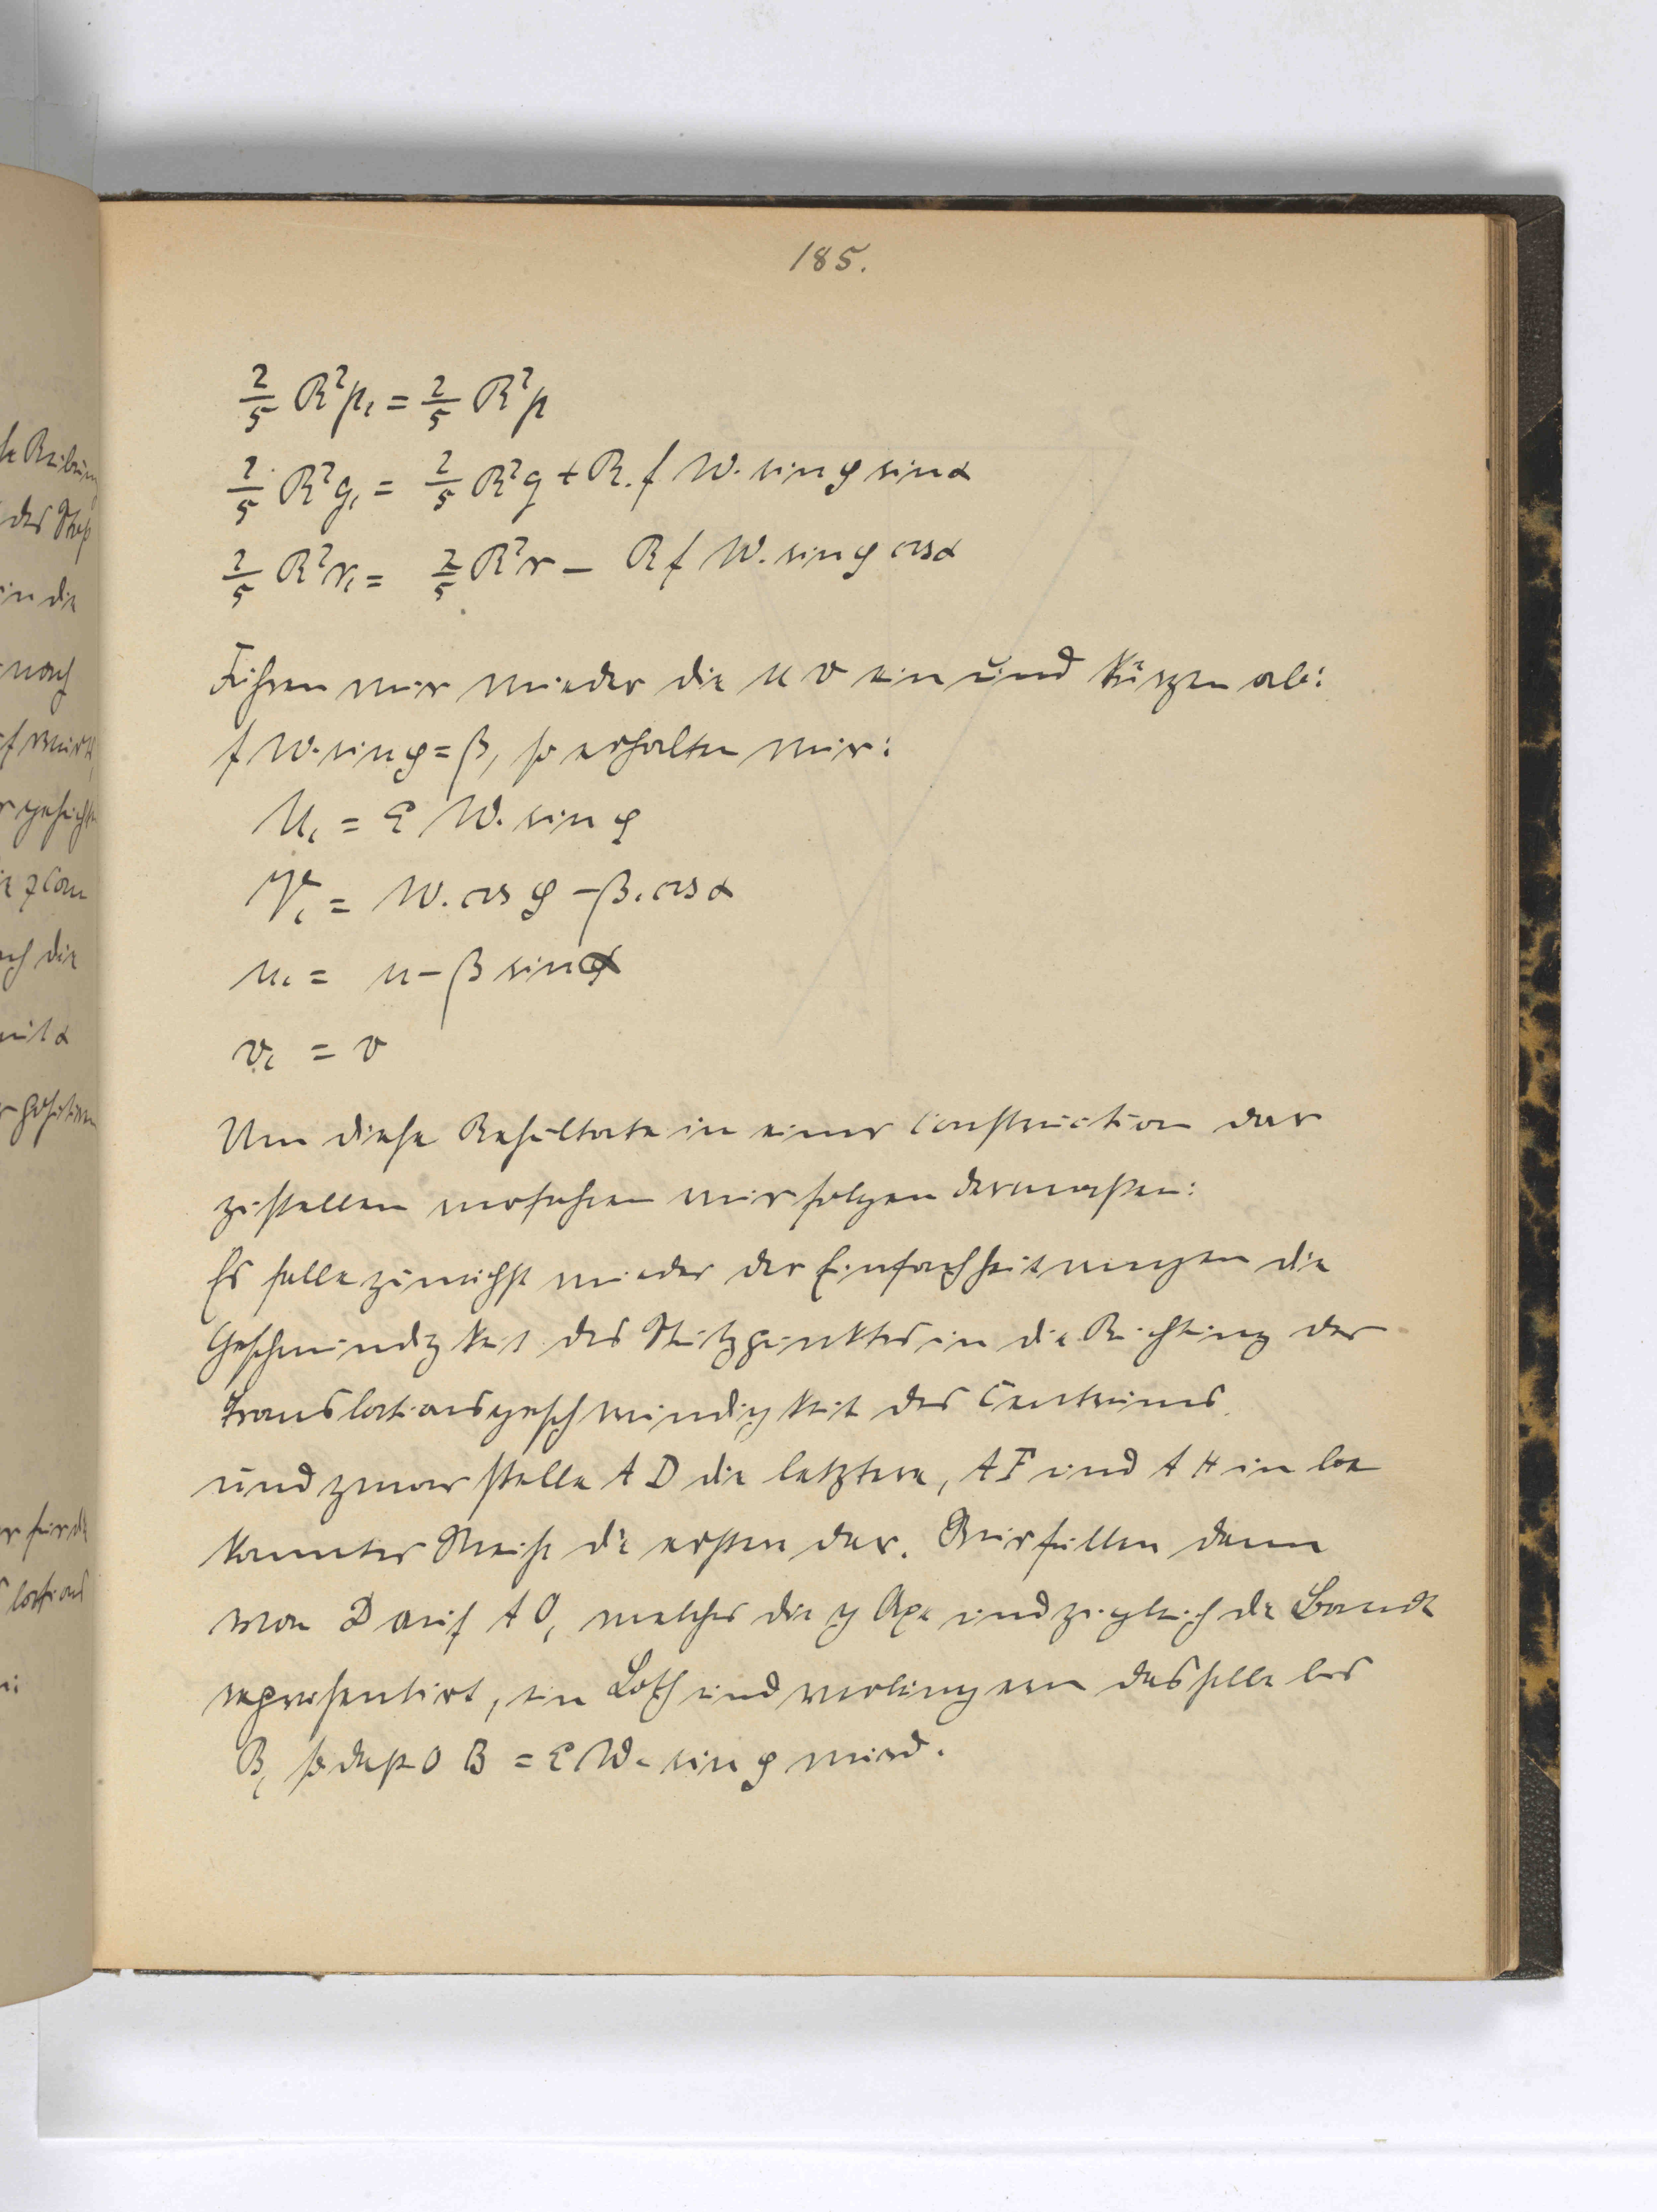 185.
2/5 R²p₁ = 2/5 R²p
2/5 R²q₁ = 2/5 R²q + R. f W. sin φ sin α
2/5 R²r₁ = 2/5 R²r – R f W. sin φ cos α
Führen wir wieder die u v ein und kürzen ab:
f W. sin φ = β, so erhalten wir:
U₁ = ε W. sin φ
V₁ = W. cos φ – β. cos α
u₁ = u – β sin α
v₁ = v
Um diese Resultate in einer Construction dar
zustellen verfahren wir folgendermaßen:
Es falle zunächst wieder der Einfachheit wegen die
Geschwindigkeit des Stützpunktes in die Richtung der
Translationsgeschwindigkeit des Centrums
und zwar stelle A D die letztere, A F und A H in be
kannter Weise die erstere dar. Wir fällen dann
von D auf A O, welches die y Axe und zugleich die Bande
repräsentirt, ein Loth und verlängern dasselbe bis
B, so daß O B = ε W. sin φ wird.